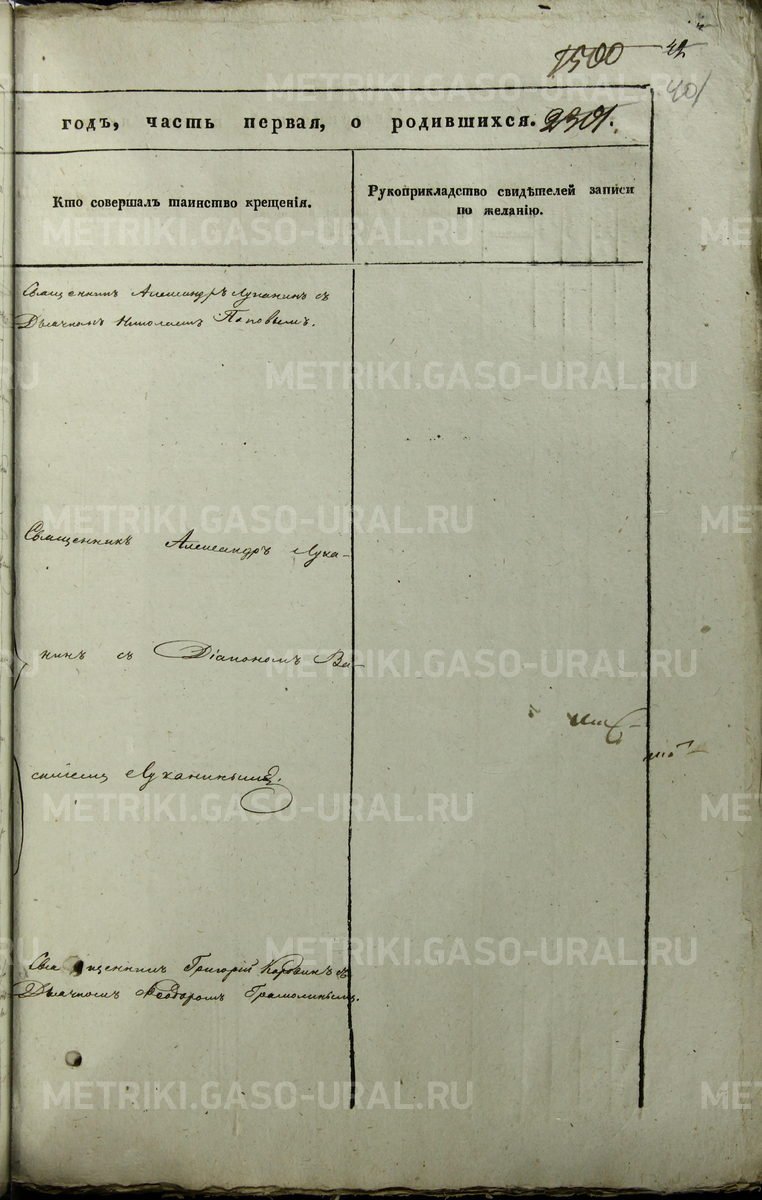 1500 42
401
годъ, часть первая, о родившихся. 2301.
Кто совершалъ таинство крещенія.
Рукоприкладство свидѣтелей записи
по желанію.
Священникъ Александръ Луканинъ съ
Дьячкомъ Николаемъ Поповымъ.
Священникъ Александръ Лука-
нинъ съ Діакономъ Ва-
силіемъ Луканинымъ.
Священникъ Григорій Коровинъ съ
Дьячкомъ Ѳеодоромъ
METRIKI.GASO-URAL.RU